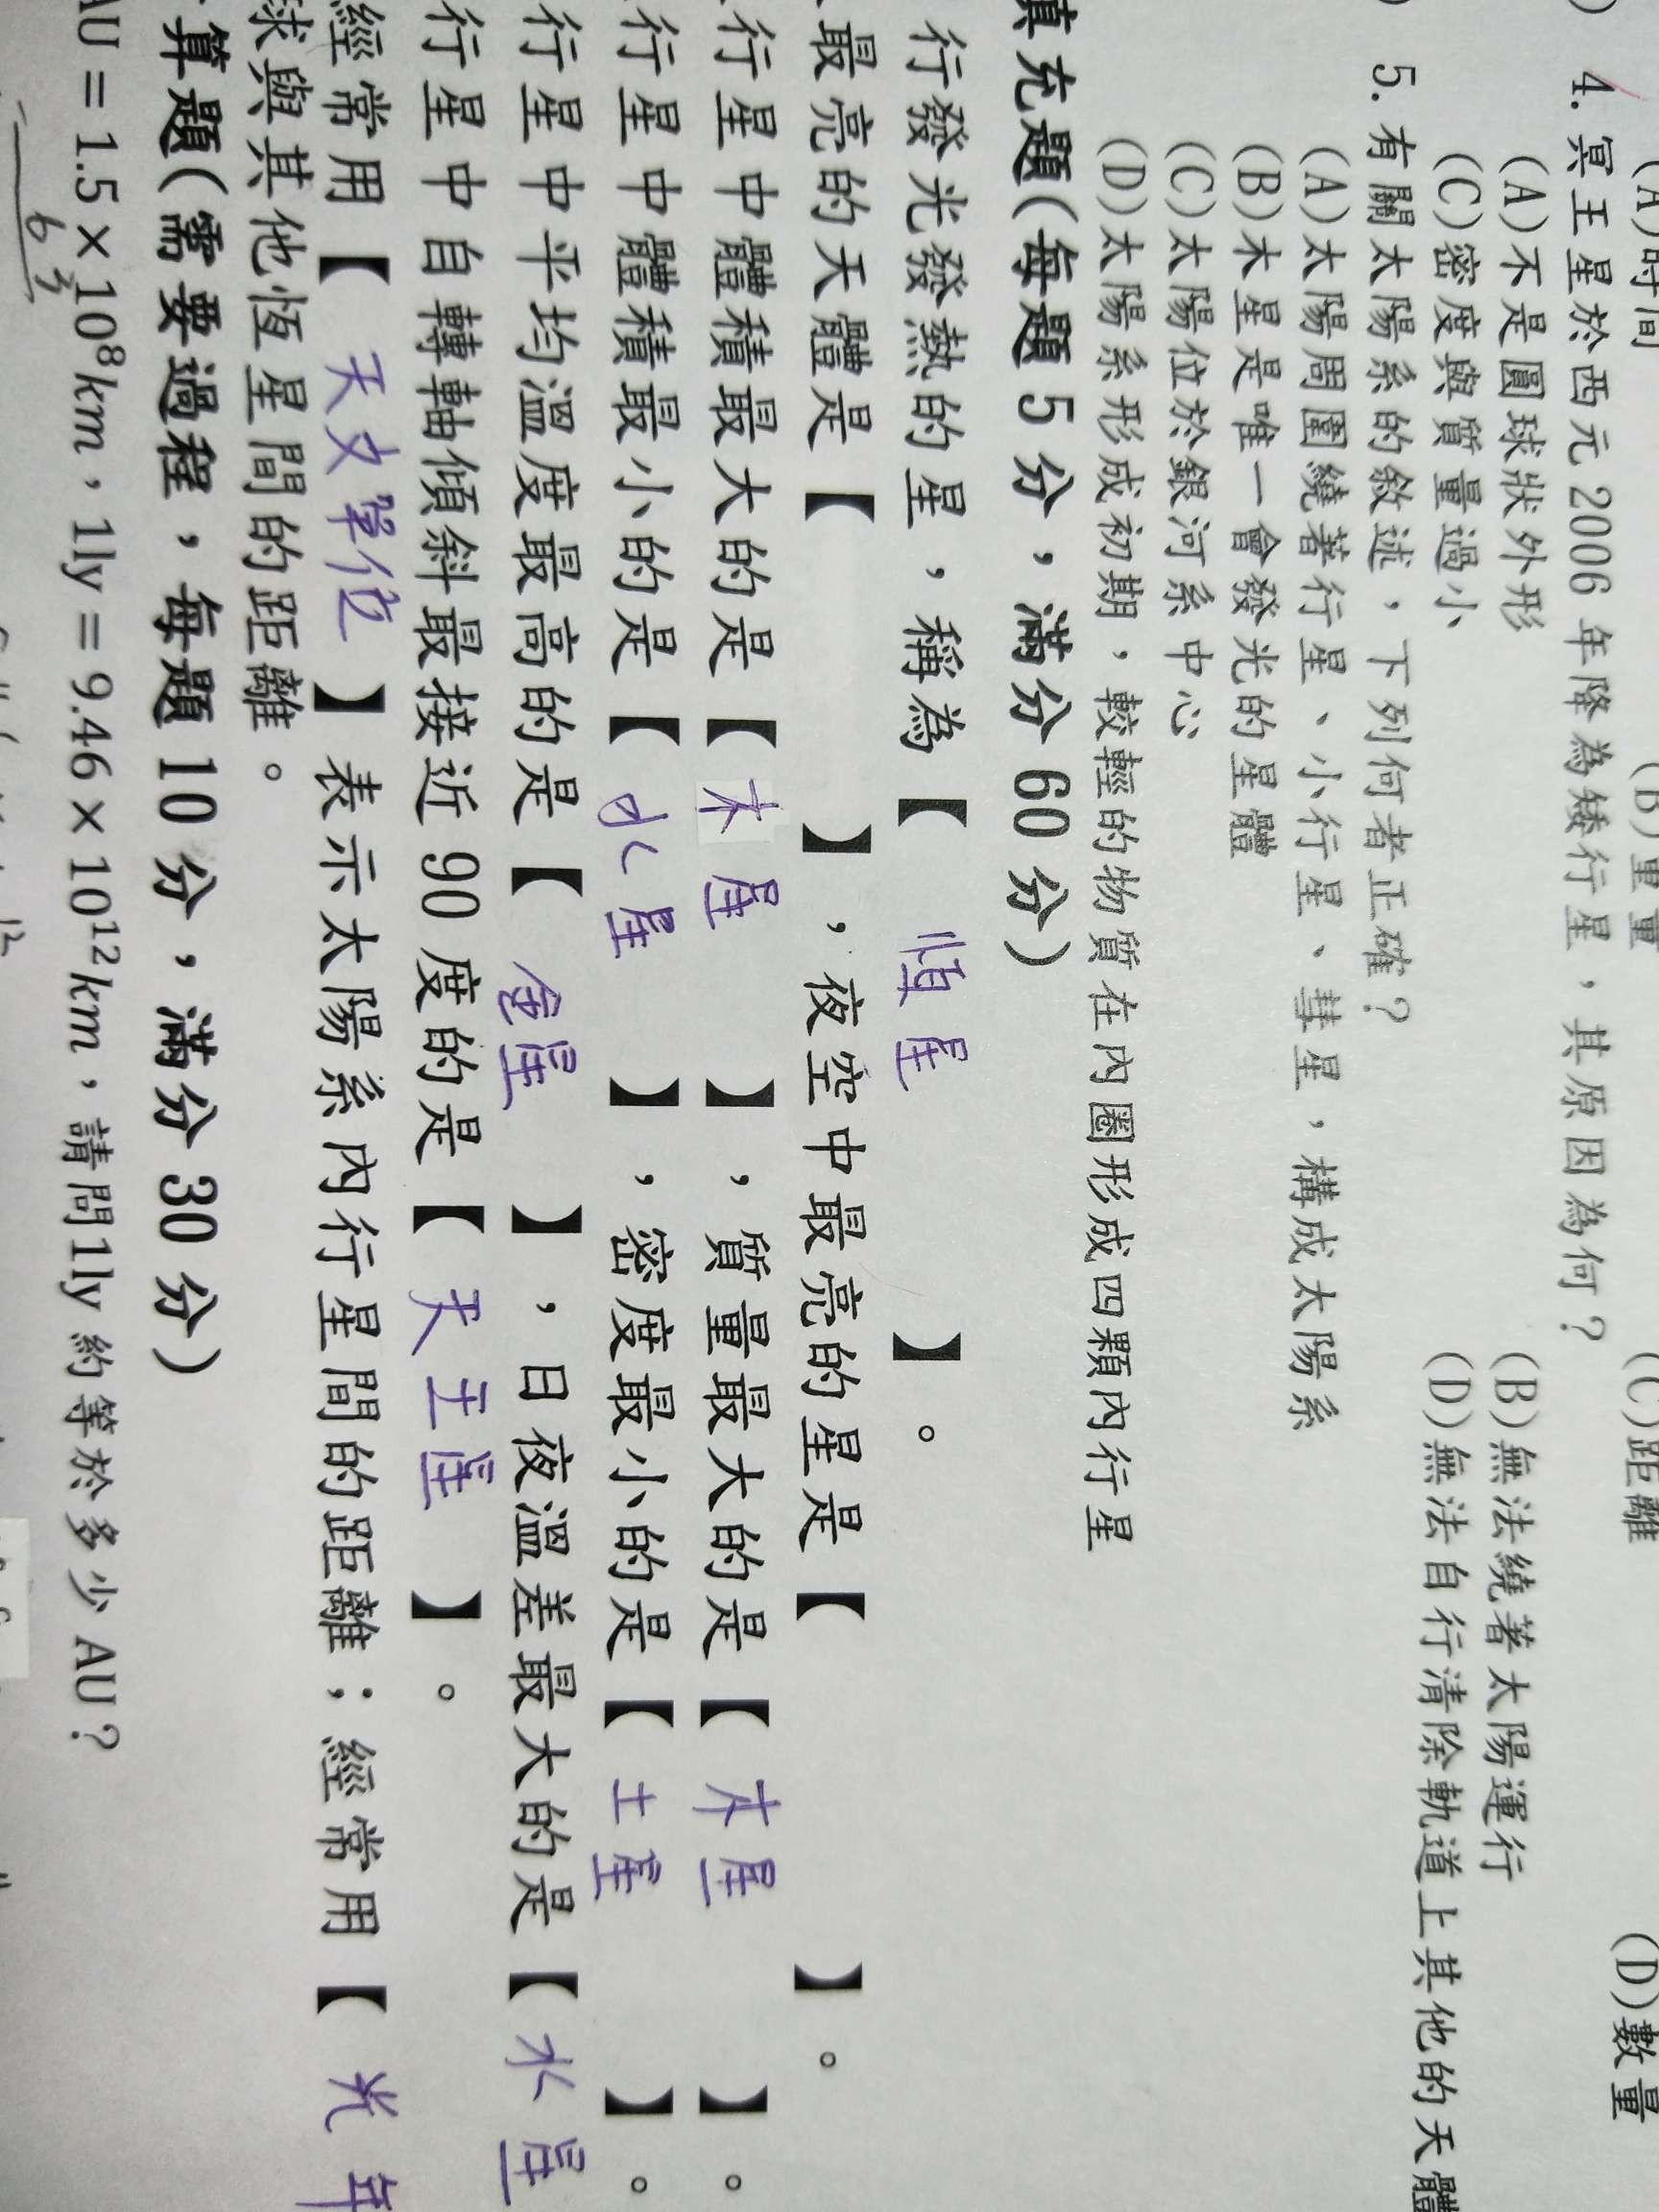 (A)時間 (B)重量 (C)距離 (D)數量
) 4. 冥王星於西元 2006 年降為矮行星，其原因為何？
(A)不是圓球狀外形 (B)無法繞著太陽運行
(C)密度與質量過小 (D)無法自行清除軌道上其他的天體
) 5. 有關太陽系的敘述，下列何者正確？
(A)太陽周圍繞著行星、小行星、彗星，構成太陽系
(B)木星是唯一會發光的星體
(C)太陽位於銀河系中心
(D)太陽系形成初期，較輕的物質在內圈形成四顆內行星
填充題(每題 5 分，滿分 60 分)
行發光發熱的星，稱為【 恆星 】。
最亮的天體是【 】，夜空中最亮的星是【 】。
行星中體積最大的是【 木星 】，質量最大的是【 木星 】。
行星中體積最小的是【 水星 】，密度最小的是【 土星 】。
行星中平均溫度最高的是【 金星 】，日夜溫差最大的是【 水星
行星中自轉軸傾斜最接近 90 度的是【 天王星 】。
經常用【 天文單位 】表示太陽系內行星間的距離；經常用【 光年
球與其他恆星間的距離。
算題(需要過程，每題 10 分，滿分 30 分)
AU = 1.5 × 10⁸km，1ly = 9.46 × 10¹²km，請問1ly 約等於多少 AU？